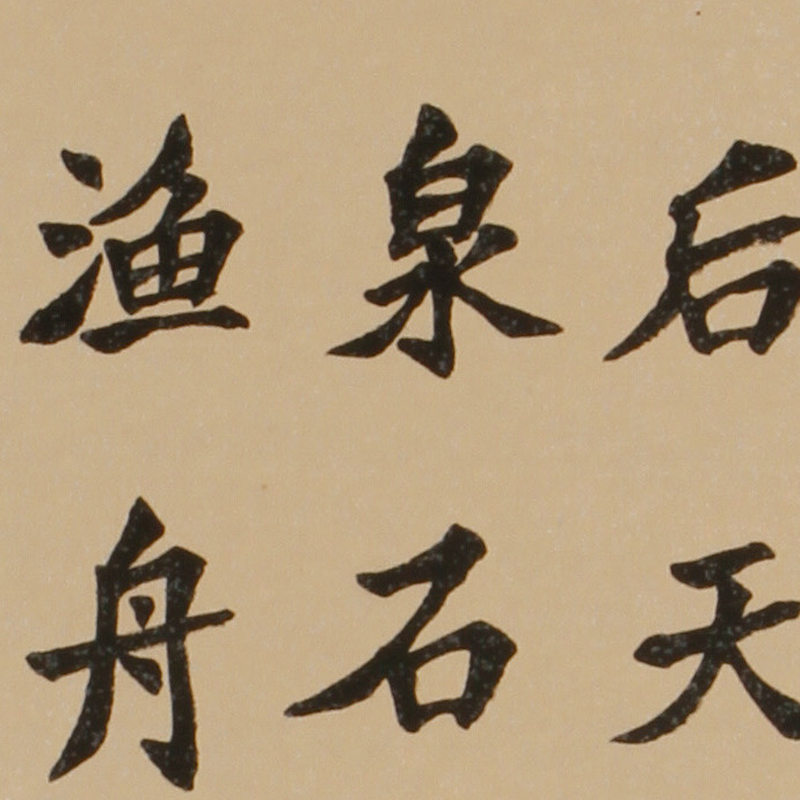 后天
泉石
渔舟